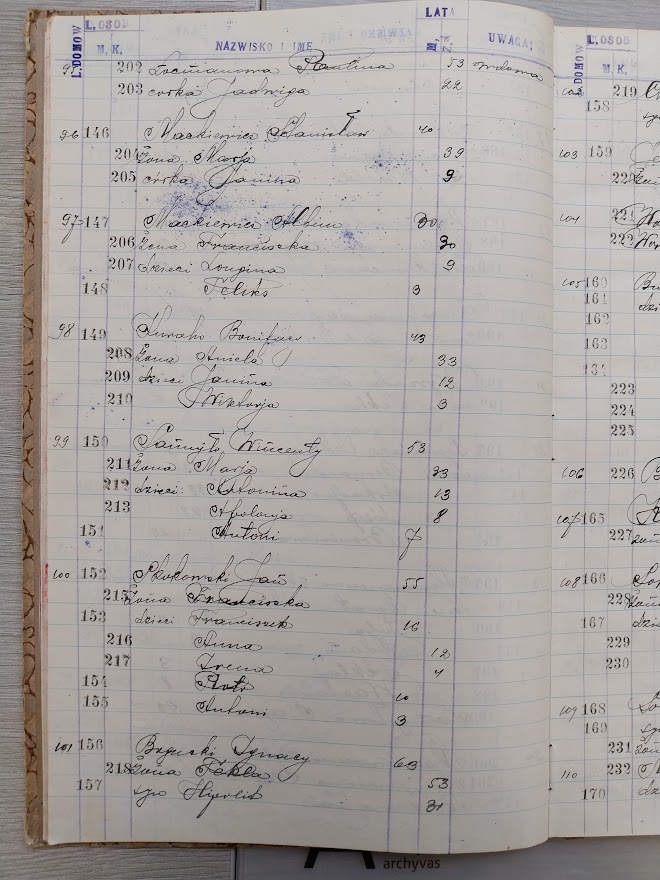 L. DOMÓW L. OSÓB M. K. NAZWISKO I IMIĘ LATA M. Ż. UWAGA:
95 202 Paulina 53 wdowa
203 córka Jadwiga 22
96 146 Mackiewicz Stanisław 40
204 żona Marja 39
205 córka Janina 9
97 147 Mackiewicz Albin 30
206 żona Franciszka 30
207 dzieci Longina 9
148 Feliks 3
98 149 Bonifacy 43
208 żona Aniela 33
209 dzieci Janina 12
210 Wiktorja 3
99 150 Wincenty 53
211 żona Marja 33
212 dzieci Antonina 13
213 Apolonja 8
151 Antoni 7
100 152 Skokowski Jan 55
215 żona Franciszka
153 dzieci Franciszek 16
216 Anna 12
217 Irena 4
154 Piotr 10
155 Antoni 3
101 156 Bogucki Ignacy 63
218 żona Tekla 53
157 syn Hipolit 31
L. DOMÓW L. OSÓB M. K.
102 219
158
103 159
104 221
222
105 160
161
162
163
223
224
225
106 226
107 165
227
108 166
228
167
229
230
109 168
169
231
110 232
170
archyvas